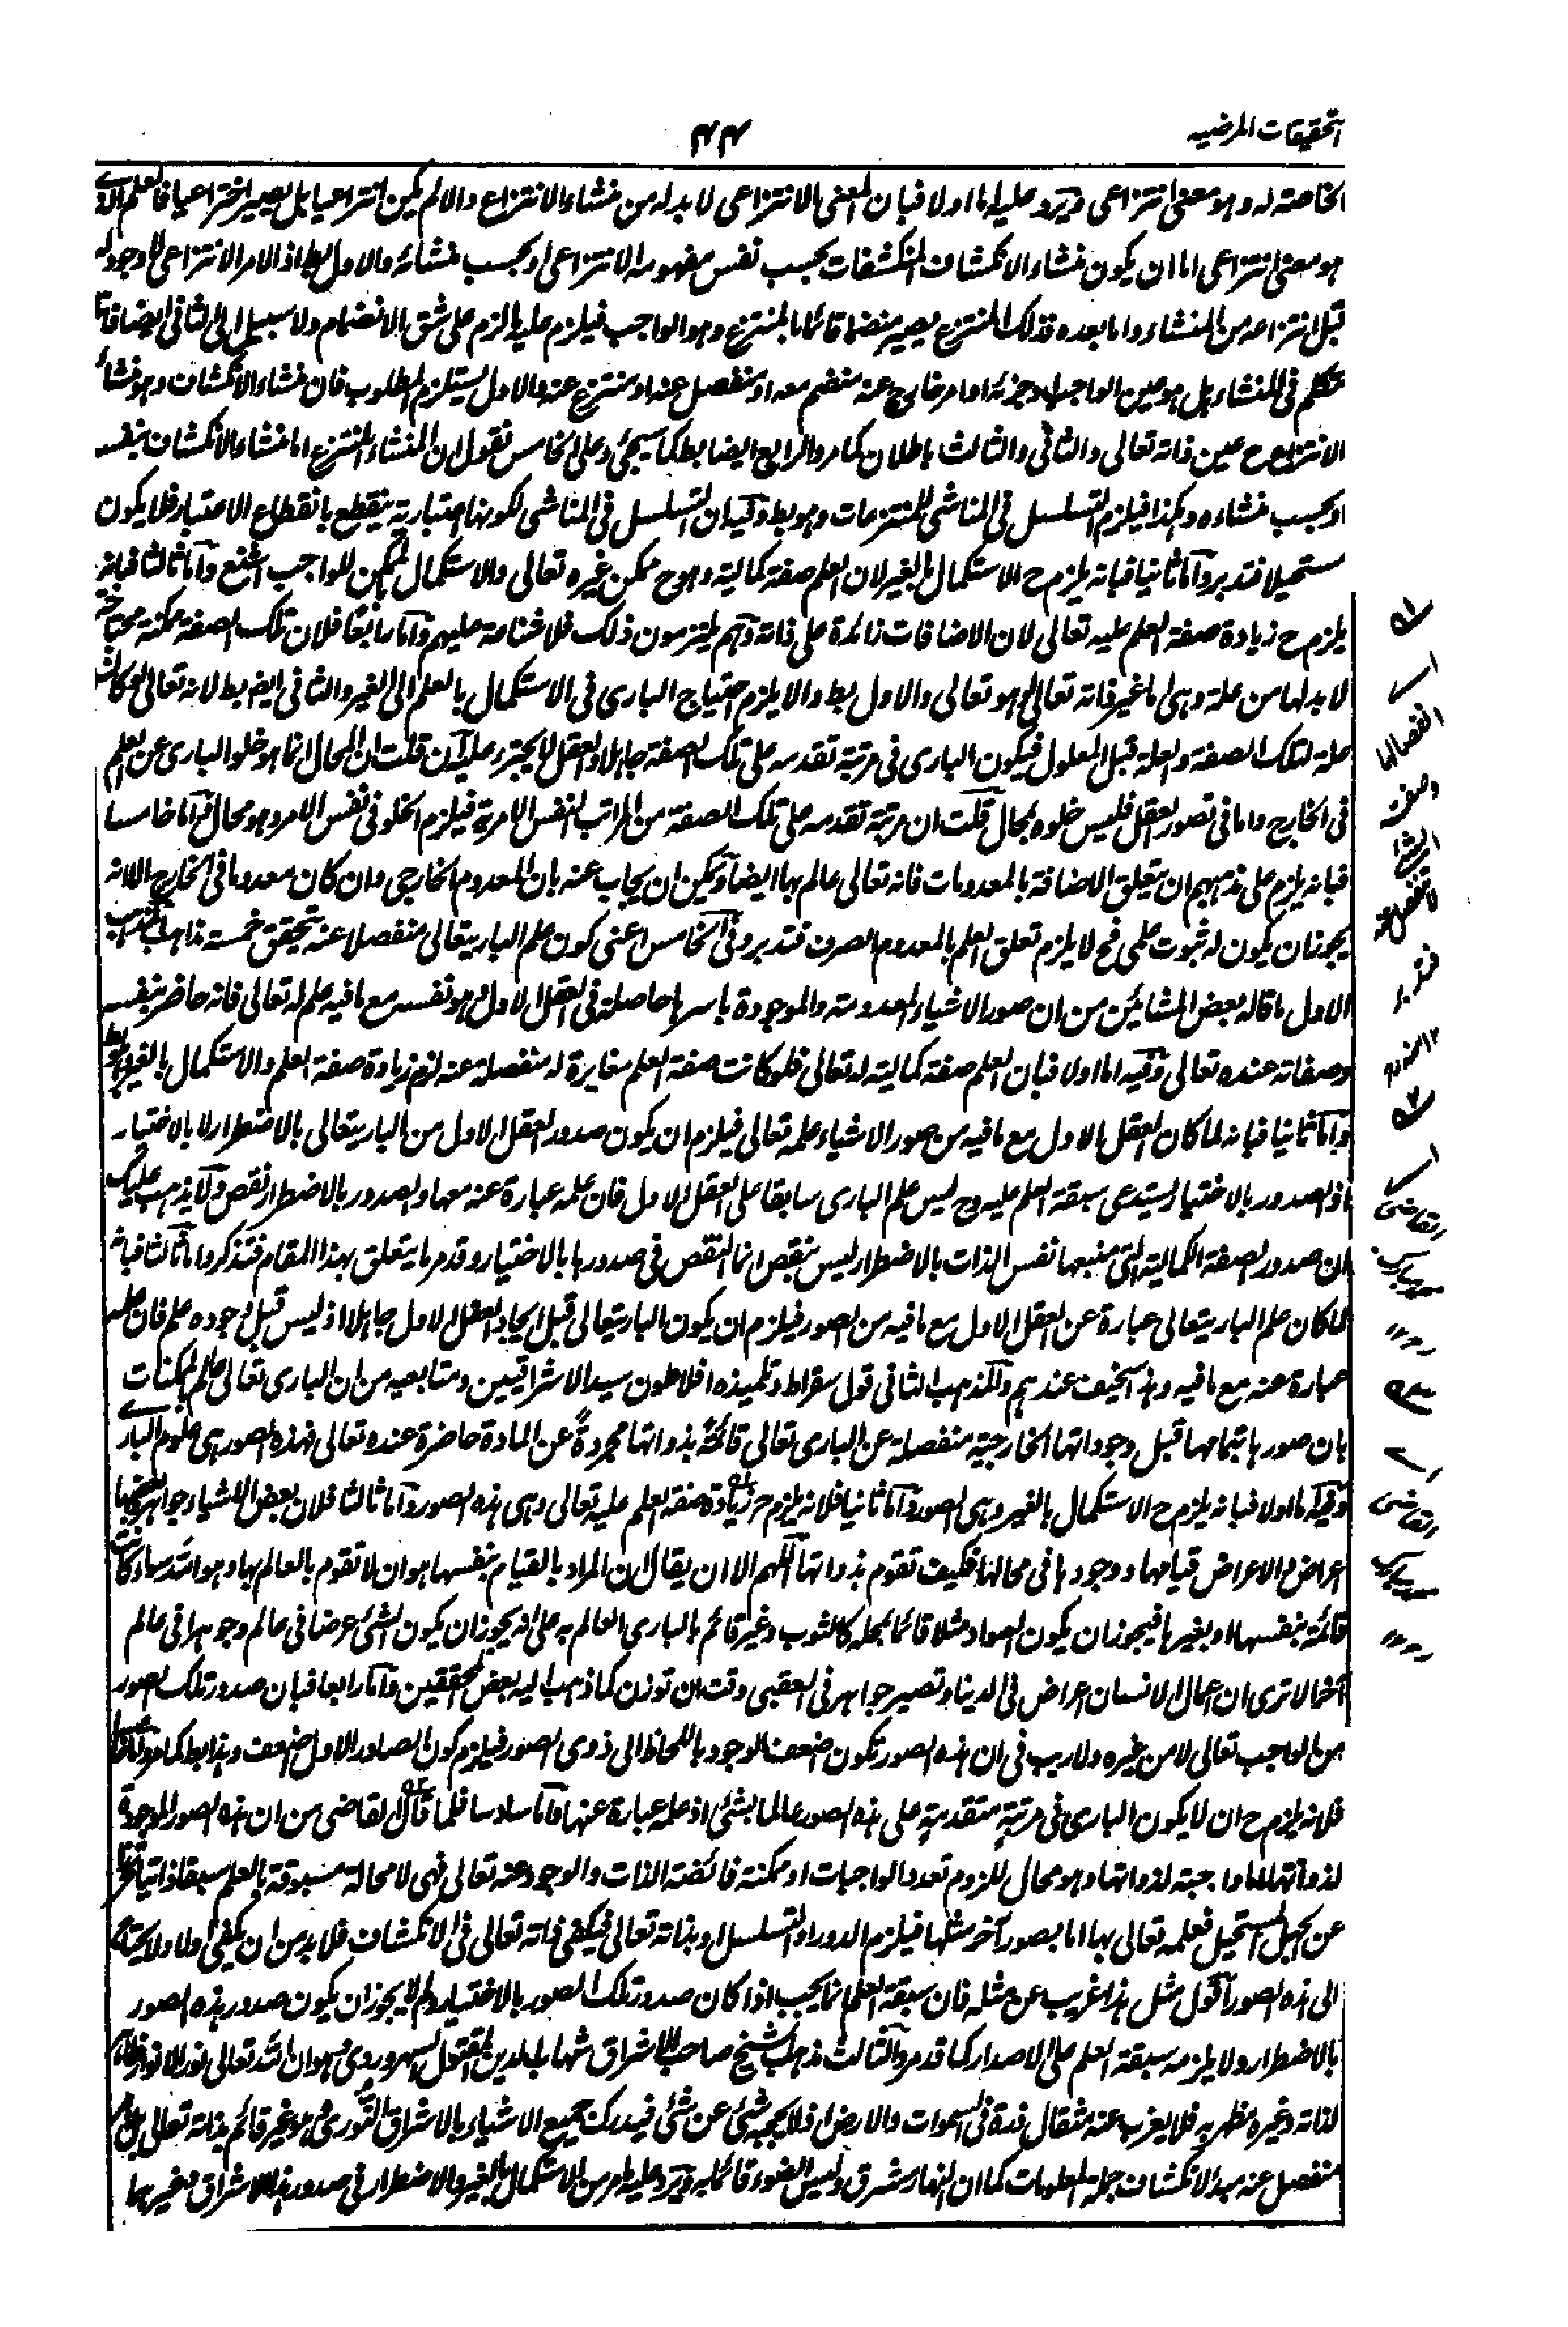 التحقيقات المرضيه
۴۴
الخاصة له وهو معنى انتزاعى ويرد عليه اما اولا فبان المعنى الانتزاعى لا بد له من منشاء الانتزاع والا لم يكن انتزاعيا بل يصير اختراعيا فالعلم الذى
هو معنى انتزاعى اما ان يكون منشاء الانكشاف المنكشفات بحسب نفس مفهومه الانتزاعى او بحسب منشائه والاول بط اذ الامر الانتزاعى لا وجود له
قبل انتزاعه من المنشاء واما بعده فذلك المنتزع يصير منضما قائما بالمنتزع وهو الواجب فيلزم عليه ما لزم على شق الانضمام ولا سبيل الى الثانى ايضا فانا
نتكلم فى المنشاء هل هو عين الواجب او جزئه او امر خارج عنه منضم معه او منفصل عنه او منتزع عنه والاول يستلزم المطلوب فان منشاء الانكشاف وهو منشأ
الانتزاع ح عين ذاته تعالى والثانى والثالث باطلان كما مر والرابع ايضا بط كما سيجئ وعلى الخامس نقول ان المنشاء المنتزع اما منشاء الانكشاف بنفسه
او بحسب منشاءه وهكذا فيلزم التسلسل فى المناشى للمنتزعات وهو بط وفيه ان التسلسل فى المناشى لكونها اعتبارية ينقطع بانقطاع الاعتبار فلا يكون
مستحيلا فتدبر واما ثانيا فبانه يلزم ح الاستكمال بالغير لان العلم صفة كمالية وهو ح ممكن غيره تعالى والاستكمال بالممكن للواجب اشنع واما ثالثا فبانه
يلزم ح زيادة صفة العلم عليه تعالى لان الاضافات زائدة على ذاته وهم يلتزمون ذلك فلا شناعة عليهم واما رابعا فلان تلك الصفة ممكنة محتاجة
لا بد لها من علة وهى اما غير ذاته تعالى او هو تعالى والاول بط والا يلزم احتياج البارى فى الاستكمال بالعلم الى الغير والثانى ايض بط لانه تعالى لو كانت
علة لتلك الصفة والعلة قبل المعلول فيكون البارى فى مرتبة تقدسه على تلك الصفة جاهلا والعقل لا يجترء عليه ان قلت ان المحال انما هو خلو البارى عن العلم
فى الخارج واما فى تصور العقل فليس خلوه بمحال قلت ان مرتبة تقدسه على تلك الصفة من المراتب النفس الامرية فيلزم الخلو فى نفس الامر وهو محال واما خامسا
فبانه يلزم على مذهبهم ان يتعلق الاضافة بالمعدومات فانه تعالى عالم بها ايضا ويمكن ان يجاب عنه بان المعدوم الخارجى وان كان معدوما فى الخارج الا انه
يجوز ان يكون له ثبوت علمى فح لا يلزم تعلق العلم بالمعدوم الصرف فتدبر وفى الخامس اعنى كون علم البارى تعالى منفصلا عنه تحقق خمسة مذاهب المذهب
الاول ما قاله بعض المشائين من ان صور الاشياء المعدومة والموجودة باسرها حاصلة فى العقل الاول فهو نفسه مع ما فيه علم له تعالى فانه حاضر بنفسه
وصفاته عنده تعالى وفيه اما اولا فبان العلم صفة كمالية له تعالى فلو كانت صفة العلم مغايرة له منفصلة عنه لزم زيادة صفة العلم والاستكمال بالغير وهو بط
واما ثانيا فبانه لما كان العقل الاول مع ما فيه من صور الاشياء علمه تعالى فيلزم ان يكون صدور العقل الاول من البارى تعالى بالاضطرار لا بالاختيار
اذ الصدور بالاختيار يستدعى سبقة العلم عليه وح ليس علم البارى سابقا على العقل الاول فان علمه عبارة عنه معها والصدور بالاضطرار نقص ولا يذهب عليك
ان صدور الصفة الكمالية التى منبعها نفس الذات بالاضطرار ليس بنقص انما النقص فى صدورها بالاختيار وقد مر ما يتعلق بهذا المقام فتذكر واما ثالثا فبانه
لما كان علم البارى تعالى عبارة عن العقل الاول مع ما فيه من الصور فيلزم ان يكون البارى تعالى قبل ايجاد العقل الاول جاهلا اذ ليس قبل وجوده علم فان علمه
عبارة عنه مع ما فيه وهذا سخيف عندهم والمذهب الثانى قول سقراط وتلميذه افلاطون سيد الاشراقيين ومتابعيه من ان البارى تعالى عالم بالممكنات
بان صورها بتمامها قبل وجوداتها الخارجية منفصلة عن البارى تعالى قائمة بذواتها مجردة عن المادة حاضرة عنده تعالى فهذه الصور هى علوم البارى
وفيه اما اولا فبانه يلزم ح الاستكمال بالغير وهى الصور واما ثانيا فلانه يلزم ح زيادة صفة العلم عليه تعالى وهى هذه الصور واما ثالثا فلان بعض الاشياء جواهر وبعضها
اعراض والاعراض قيامها ووجودها فى محالها فكيف تقوم بذواتها اللهم الا ان يقال ان المراد بالقيام بنفسها هو ان لا تقوم بالعالم بها وهو الله سواء كانت
قائمة بنفسها او بغيرها فيجوز ان يكون السواد مثلا قائما بمحله كالثوب وغير قائم بالبارى العالم به على انه يجوز ان يكون الشئ عرضا فى عالم وجوهرا فى عالم
آخر الا ترى ان اعمال الانسان اعراض فى الدنيا وتصير جواهر فى العقبى وقت ان توزن كما ذهب اليه بعض المحققين واما رابعا فبان صدور تلك الصور
من الواجب تعالى لا من غيره ولا ريب فى ان هذه الصور تكون اضعف الوجود باللحاظ الى ذوى الصور فيلزم كون الصادر الاول اضعف وهذا بط كما مر واما خامسا
فلانه يلزم ح ان لا يكون البارى فى مرتبة متقدمة على هذه الصور عالما بشئ اذ علمه عبارة عنها واما سادسا فلما قال القاضى من ان هذه الصور الموجودة
لذواتها اما واجبة لذواتها وهو محال للزوم تعدد الواجبات او ممكنة فائضة الذات والوجود عنه تعالى فهى لا محالة مسبوقة بالعلم سبقا ذاتيا تحرزا
عن الجهل المستحيل فعلمه تعالى بها اما بصور آخر مثلها فيلزم الدور او التسلسل او بذاته تعالى فيكفى ذاته تعالى فى الانكشاف فلا بد من ان يكفى اولا ولا يحتاج
الى هذه الصور اقول مثل هذا غريب عن مثله فان سبقة العلم انما يجب اذا كان صدور تلك الصور بالاختيار ولم لا يجوز ان يكون صدور هذه الصور
بالاضطرار ولا يلزمه سبقة العلم على الاصدار كما قد مر والثالث مذهب الشيخ صاحب الاشراق شهاب الدين المقتول السهروردى وهو ان الله تعالى نور الانوار
لذاته وغيره مظهر به فلا يعزب عنه مثقال ذرة فى السموات والارض اذ لا يحجبه شئ عن شئ فيدرك جميع الاشياء بالاشراق النورى وهو غير قائم بذاته تعالى بل هو
منفصل عنه مبدء لانكشاف جملة المعلومات كما ان النهار مشرق وليس الضوء قائما به ويرد عليه ما مر من الاستكمال بالغير والاضطرار فى صدور هذا الاشراق وغيرهما
اى
القاضى
مبارك
اى
القاضى
مبارك